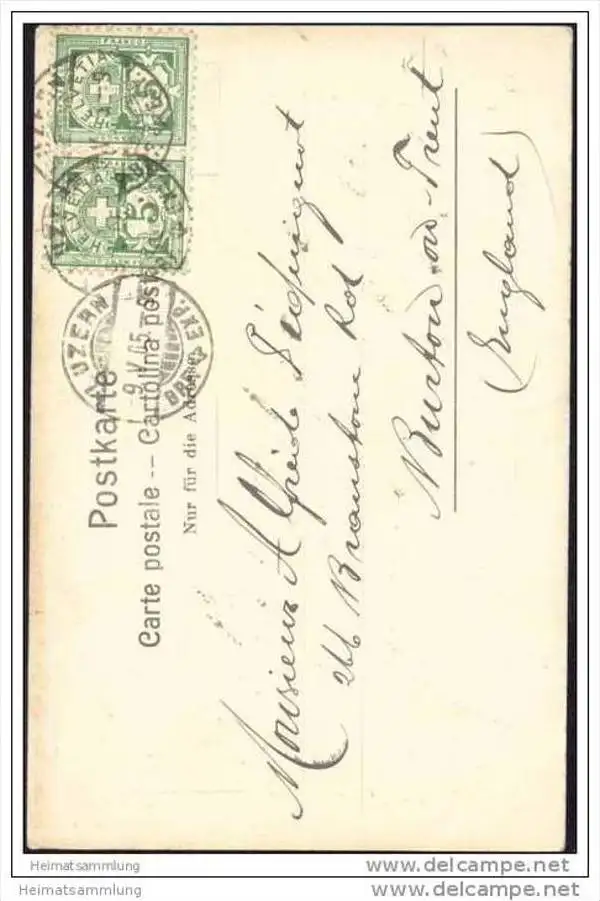 Postkarte
Carte postale -- Cartolina post
Nur für die Adresse.
HELVETIA
FRANCO
5
HELVETIA
5
LUZERN
9.V.05
BRF. EXP.
Monsieur Alfred
266 Branstone Rd
Burton-on-Trent
England
Heimatsammlung
www.delcampe.net
Heimatsammlung
www.delcampe.net